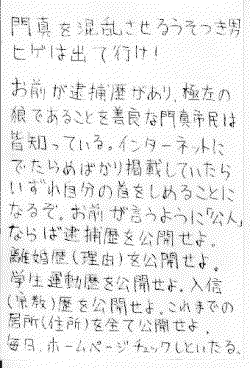 門真を混乱させるうそつき男
ヒゲは出て行け！
お前が逮捕歴があり、極左の
狼であることを善良な門真市民は
皆知っている。インターネットに
でたらめばかり掲載していたら
いずれ自分の首をしめることに
なるぞ。お前が言うように「公人」
ならば逮捕歴を公開せよ。
離婚歴(理由)を公開せよ。
学生運動歴を公開せよ。入信
(宗教)歴を公開せよ。これまでの
居所(住所)を全て公開せよ。
毎日、ホームページチェックしといたる。